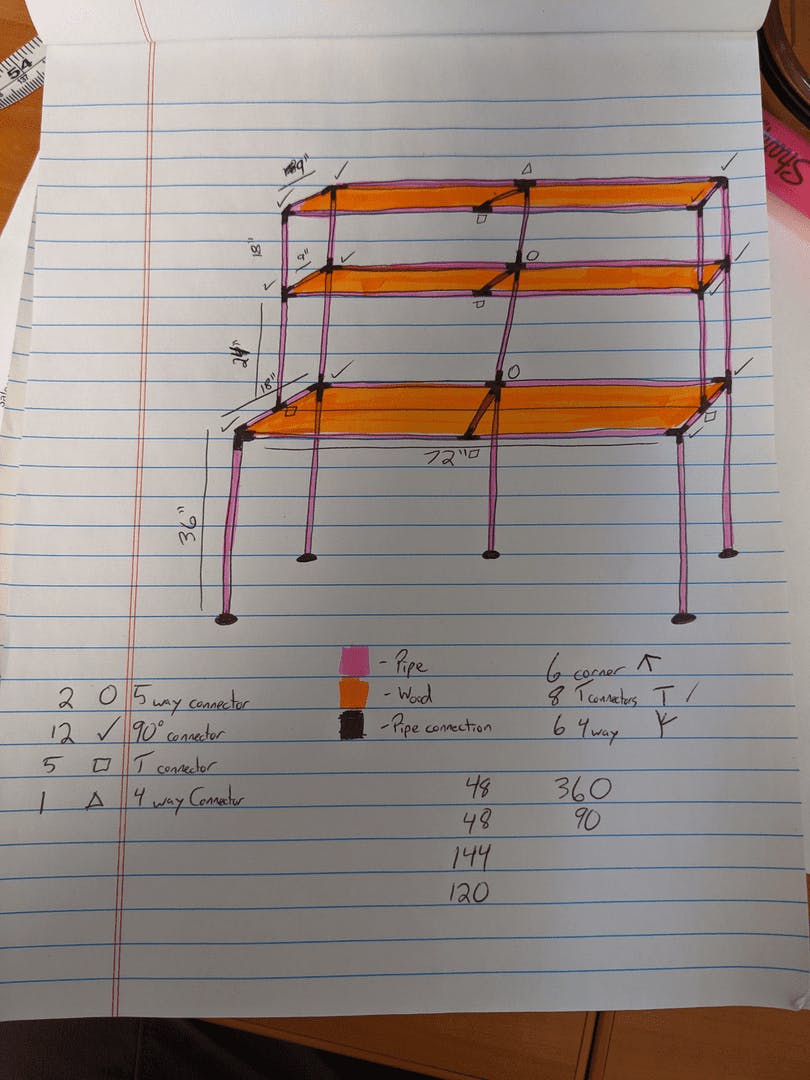 54
Sha
9"
18"
9"
24"
18"
72"
36"
- Pipe
- Wood
- Pipe connection
6 corner
8 T connectors T
6 4 way
2 O 5 way connector
12 ✓ 90° connector
5 □ T connector
1 △ 4 way Connector
48 360
48 90
144
120